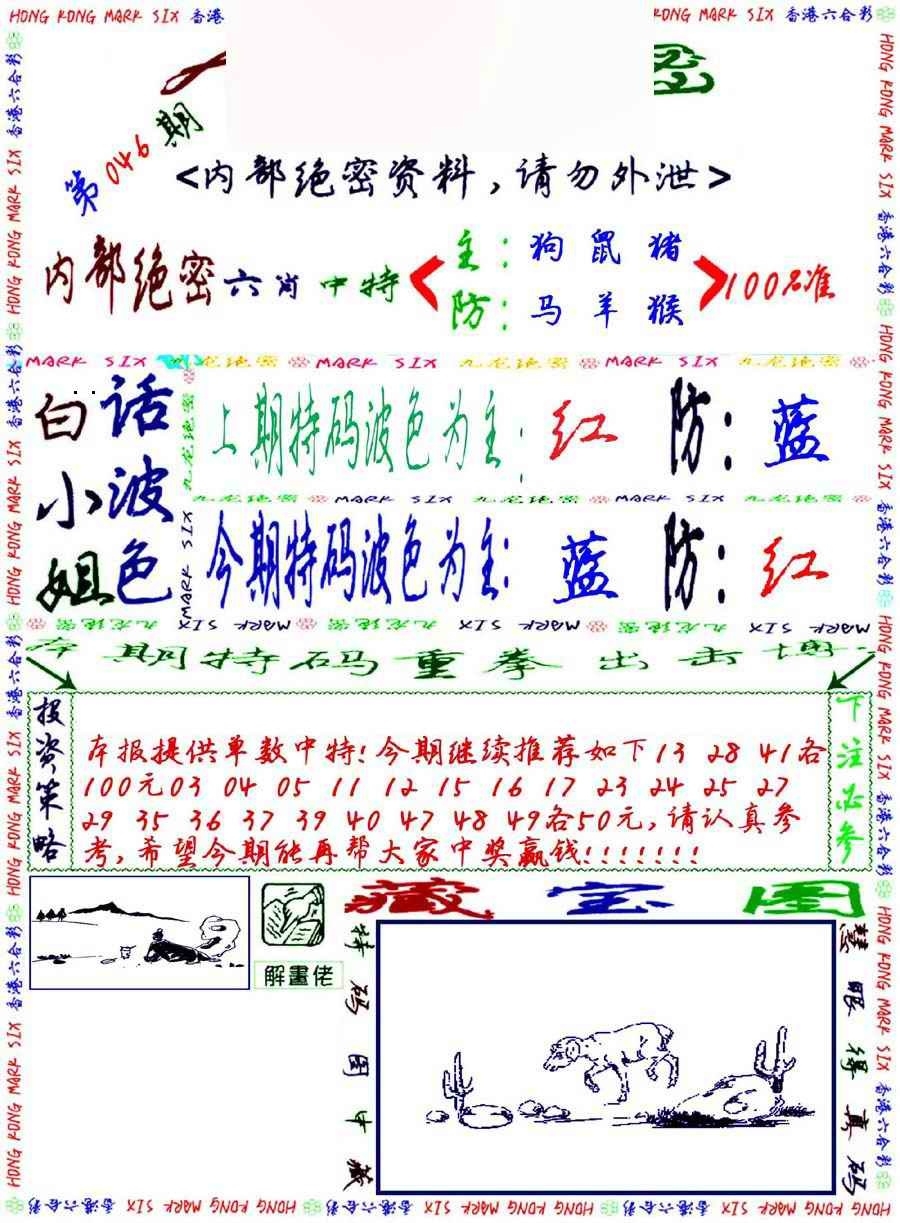 HONG KONG MARK SIX 香港
KONG MARK SIX 香港六合彩
第046期
<内部绝密资料,请勿外泄>
内部绝密六肖中特
主:狗鼠猪
防:马羊猴
100%准
MARK SIX 九龙绝密 MARK SIX 九龙绝密 MARK SIX 九龙绝密
白小姐
话波色
上期特码波色为主:红 防:蓝
九龙绝密 MARK SIX 九龙绝密 MARK SIX 九龙绝密
今期特码波色为主:蓝 防:红
九龙绝密 MARK SIX
本期特码重拳出击博
投资策略
本报提供单数中特!今期继续推荐如下13 28 41各
100元03 04 05 11 12 15 16 17 23 24 25 27
29 35 36 37 39 40 47 48 49各50元,请认真参
考,希望今期能再帮大家中奖赢钱!!!!!!!
下注必参
解畫佬
藏宝图
特码图中藏
慧眼得真码
HONG KONG MARK SIX 香港六合彩